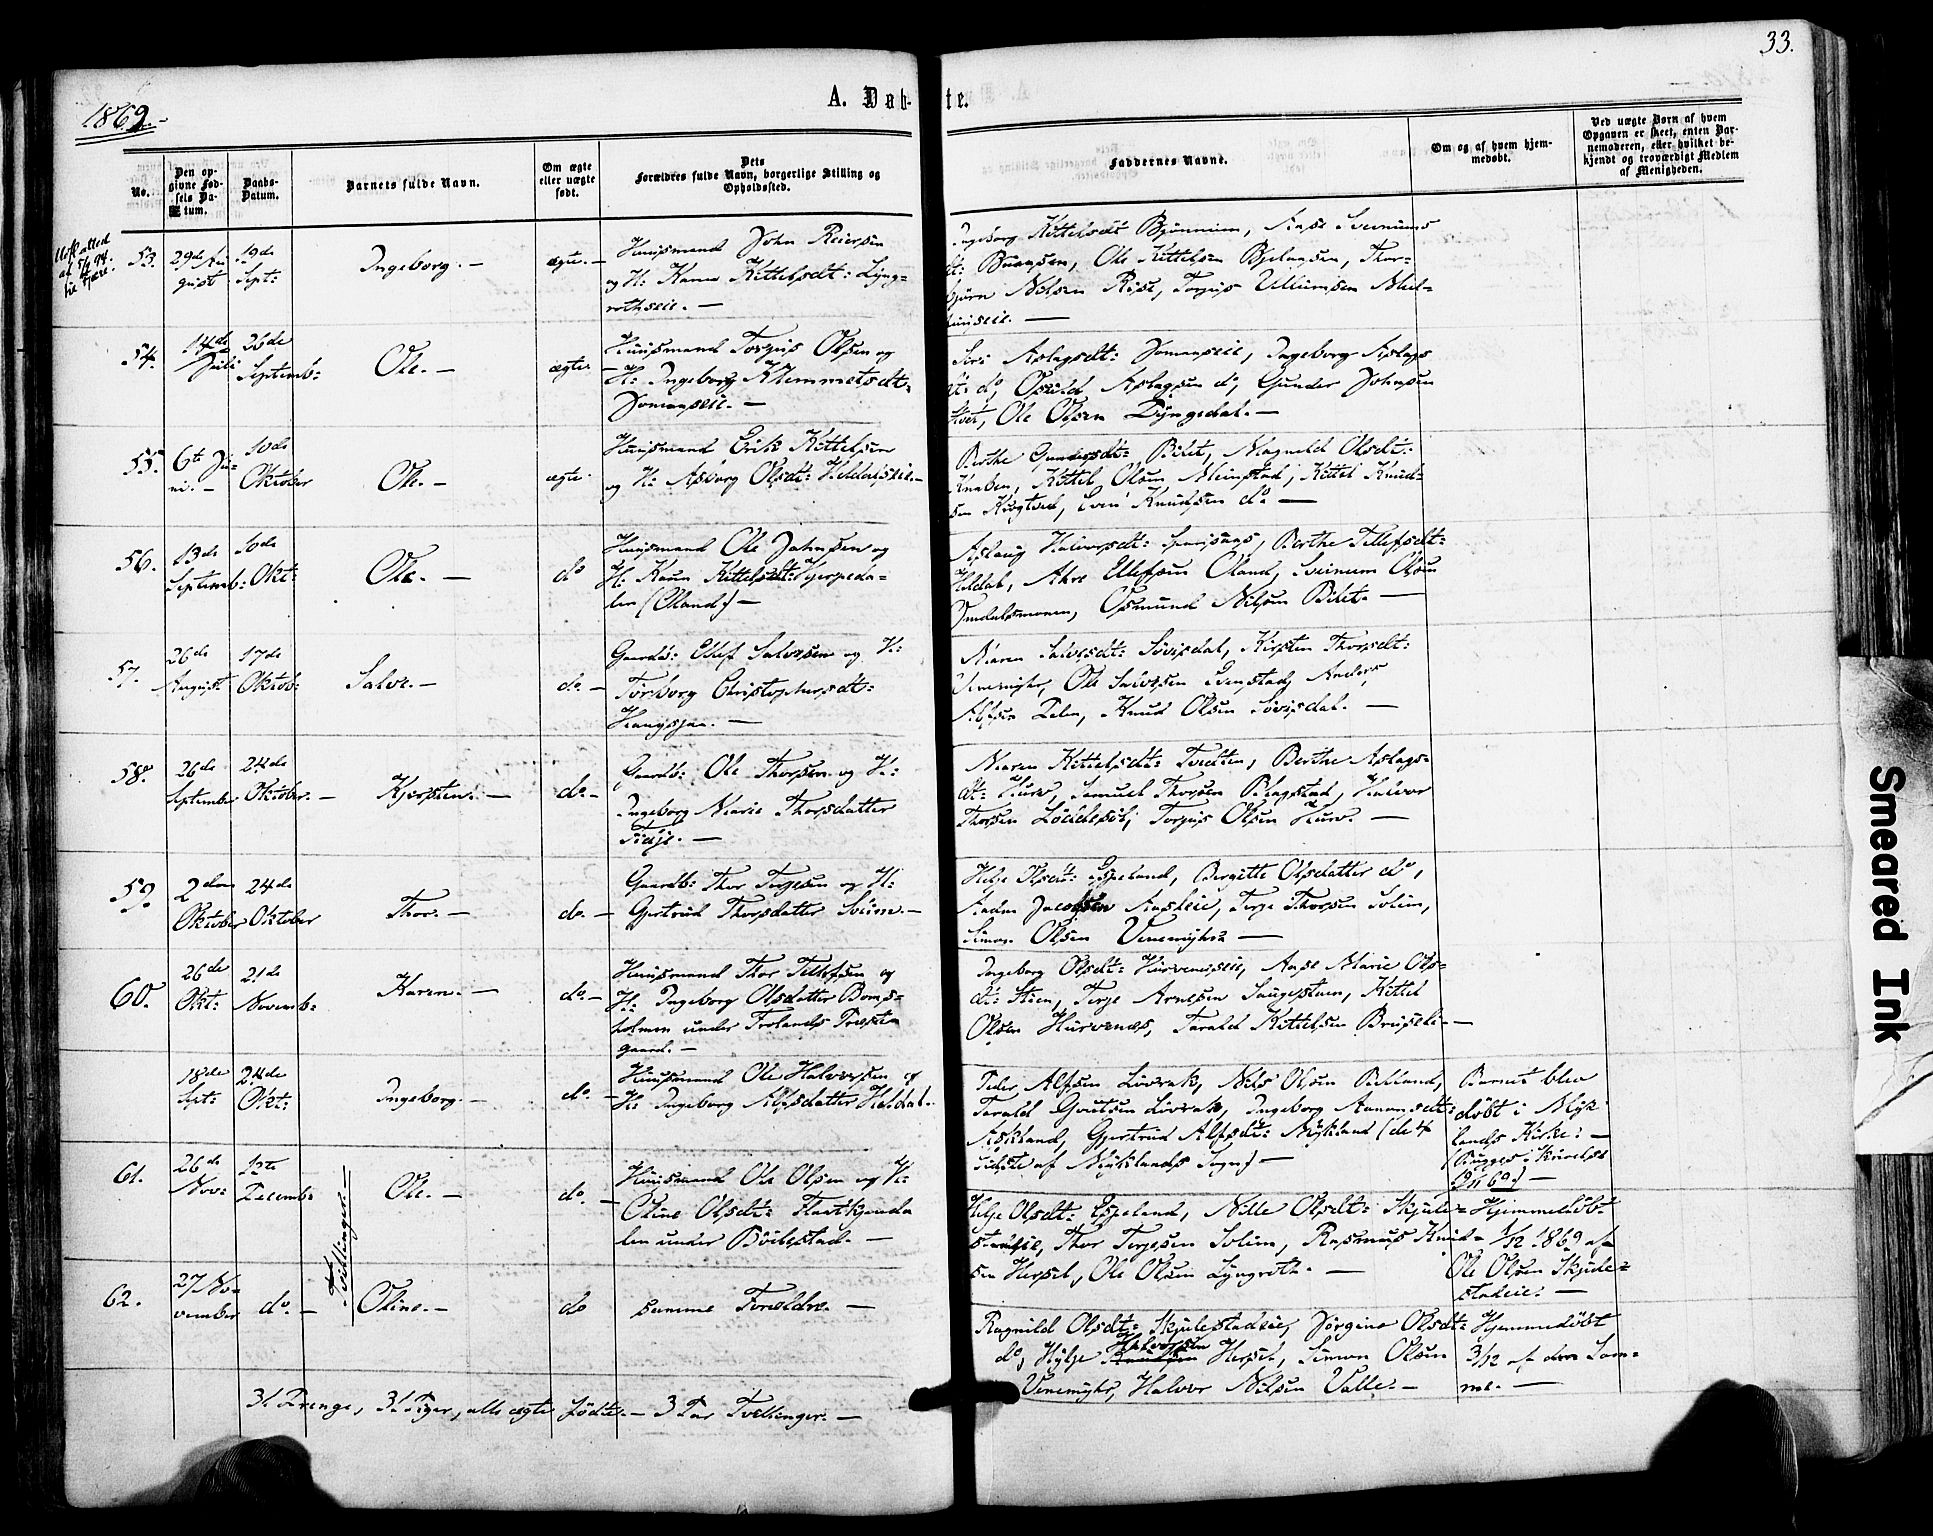 33.
1869.-
A. Døbte.
No.
Den opgivne Fødsels Datum.
Daabs-Datum.
Barnets fulde Navn.
Om ægte eller uægte født.
Dets Forældres fulde Navn, borgerlige Stilling og Opholdssted.
Faddernes Navne.
Om og af hvem hjemmedøbt.
Ved uægte Børn af hvem Opgaven er skeet, enten Barnemoderen, eller hvilket bekjendt og troværdigt Medlem af Menigheden.
53.
29de August
19de Sept:
Ingeborg. -
ægte. -
Huusmand John Reiersen
og H: Karen Kittelsdt: Lyng-
rothseie. -
Ingeborg Kittelsdt: Bjønnum, Aase Sveinums
dt: Buansen, Ole Kittelsen Bjelansen, Thor-
bjørn Nilsen Rise, Torjus Villumsen
54.
14de Juli
26de Septemb:
Ole. -
ægte.
Huusmand Torjus Olsen og
H: Ingeborg Klemmetsdt:
Jomaaseie. -
Siri Aslagsdt: Jomaaseie, Ingeborg Aslags
dt: do, Osuld Aslagsen do, Gunder Johnsen
Ole Olsen Lyngedal. -
55.
6te Ju-
ni. -
10de Oktober
Ole. -
ægte.
Huusmand Erik Kittelsen
og H: Asborg Olsdt: Heldalseie. -
Berthe Gundersdt: Bilet, Magnild Olsdt:
Knaben, Kittel Olsen Meinstad, Kittel Knud-
sen Krogtved, Even Knudsen do. -
56.
13de Septemb:
10de Okt:
Ole. -
do
Huusmand Ole Johnsen og
H: Karen Kittelsdt: Kjerpeda-
len (Oland) -
Aslaug Halvorsdt: Berthe Tellefsdt:
Heldal, Atre Ellefsen Oland, Sveinum Olsen
Osmund Nilsen Bilet. -
57.
26de August
17de Oktob:
Salve. -
do. -
Gaardb: Ellef Salvesen og H:
Torborg Christophersdt:
Haugsjaa. -
Maren Salvesdt: Løvisdal, Kirsten Thorsdt:
Venemyhr, Ole Salvesen Evenstad, Anders
Alfsen Telen, Knud Olsen Løvisdal. -
58.
26de September
24de Oktober. -
Kjersten. -
do. -
Gaardb: Ole Thorsen og H:
Ingeborg Marie Thorsdatter
Maren Kittelsdt: Tvedten, Berthe Aslags-
dt: Hurv, Samuel Thorsen Blagstad, Halvor
Thorsen Torjus Olsen Hurv. -
59.
2den Oktober
24de Oktober
Thor. -
do. -
Gaardb: Thor Terjesen og H:
Gertrud Thorsdatter Solem. -
Helje Olsdt: Espeland, Bergitte Olsdatter do,
Aadne Jacobsen Aasheie, Terje Thorsen Solem,
Simon Olsen Venemyhr -
60.
26de Okt:
21de Novemb:
Karen. -
do. -
Huusmand Thor Tellefsen og
H: Ingeborg Olsdatter Boms-
holmen under Frolands Præste-
gaard. -
Ingeborg Olsdt: Hurveneseie, Aase Marie Ols-
dt: Stien, Terje Arnesen Kittel
Olsen Hurvenæs, Tarald Kittelsen -
18de Sept:
24de Okt:
Ingeborg. -
do. -
Huusmand Ole Halvorsen og
H: Ingeborg Alfsdatter Heldal. -
Peder Alfsen Løvrak, Nils Olsen Birkland,
Tarald Goutsen Løvrak, Ingeborg Aanonsdt:
Askland, Gjertrud Alfsdt: Mykland (de 4
sidste af Myklands Sogn) -
Barnet blev
døbt i Myk-
lands Kirke: -
61.
26de Nov:
12te Decemb:
Tvillinger. -
Ole. -
do. -
Huusmand Ole Olsen og H:
Oline Olsdt: Flaatkjenda
len under Bøilestad. -
Helje Olsdt: Espeland, Nille Olsdt: Skjule-
stadeie, Thor Terjesen Solem, Rasmus Knud-
sen Hersel, Ole Olsen Lyngroth. -
Hjemmedøbt
1/12 1869 af
Ole Olsen Skjule-
stadeie. -
62.
27 No-
vember
do. -
Oline. -
do
samme Forældre. -
Ragnild Olsdt: Skjulestadeie, Jørgine Olsdt:
do, Hylje Halvorsen Hersel, Simon Olsen
Venemyhr, Halvor Nilsen Valle. -
Hjemmedøbt
3/12 af den Sam-
me. -
31 Drenge, 31 Piger, alle ægte fødte. - 3 Par Tvillinger. -
Smeared Ink